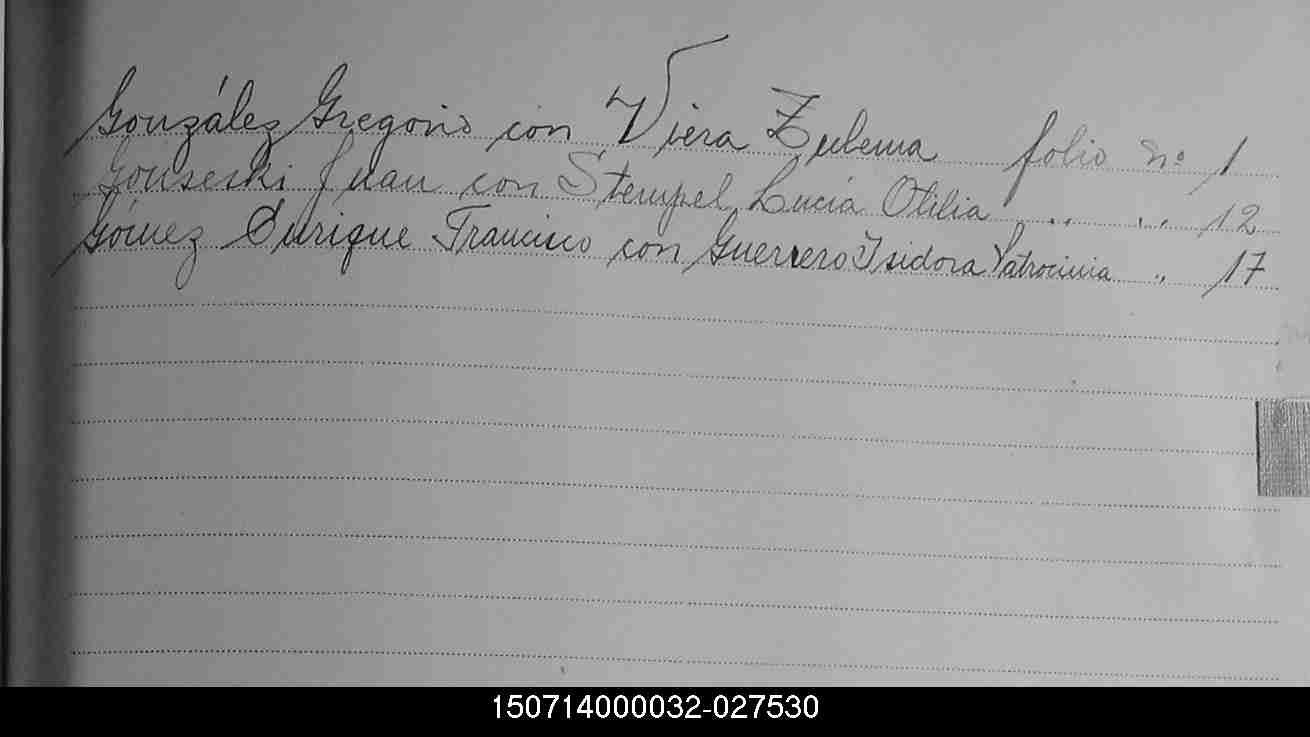 González Gregorio con Viera Zulema folio nº 1
Gouseski Juan con Stempel Lucía Otilia " " 12
Gómez Enrique Francisco con Guerrero Isidora Patrocinia " 17
150714000032-027530